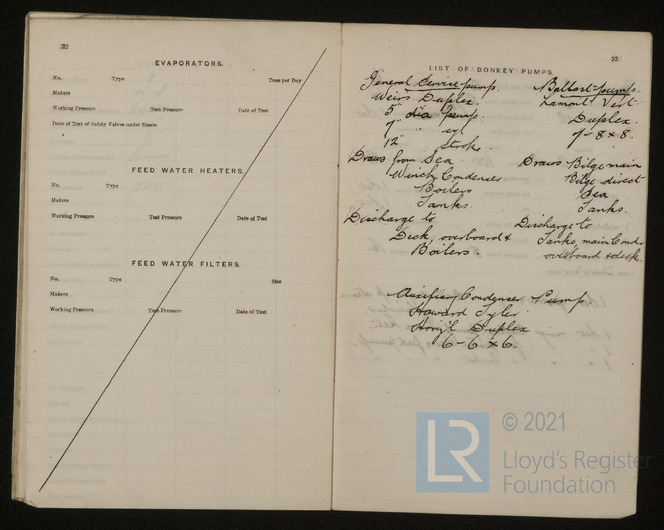 32
EVAPORATORS.
No. Type Tons per Day
Makers
Working Pressure Test Pressure Date of Test
Date of Test of Safety Valves under Steam
FEED WATER HEATERS.
No. Type
Makers
Working Pressure Test Pressure Date of Test
FEED WATER FILTERS.
No. Type Size
Makers
Working Pressure Test Pressure Date of Test
33
LIST OF DONKEY PUMPS.
General Service pump. Ballast pump.
Weirs Duplex. Lamont Vert
5" dia pump. Duplex.
7" " cyl 7 - 8 × 8.
12" stroke
Draws from Sea. Draws Bilge main
Winch Condenser Bilge direct
Boilers Sea
Tanks. Tanks.
Discharge to Discharge to
Deck, overboard & Tanks, main Condr
Boilers. overboard & deck.
Auxiliary Condenser Pump
Howard Tyler
Horiz'l Duplex
6 - 6 × 6.
LR
© 2021
Lloyd's Register
Foundation